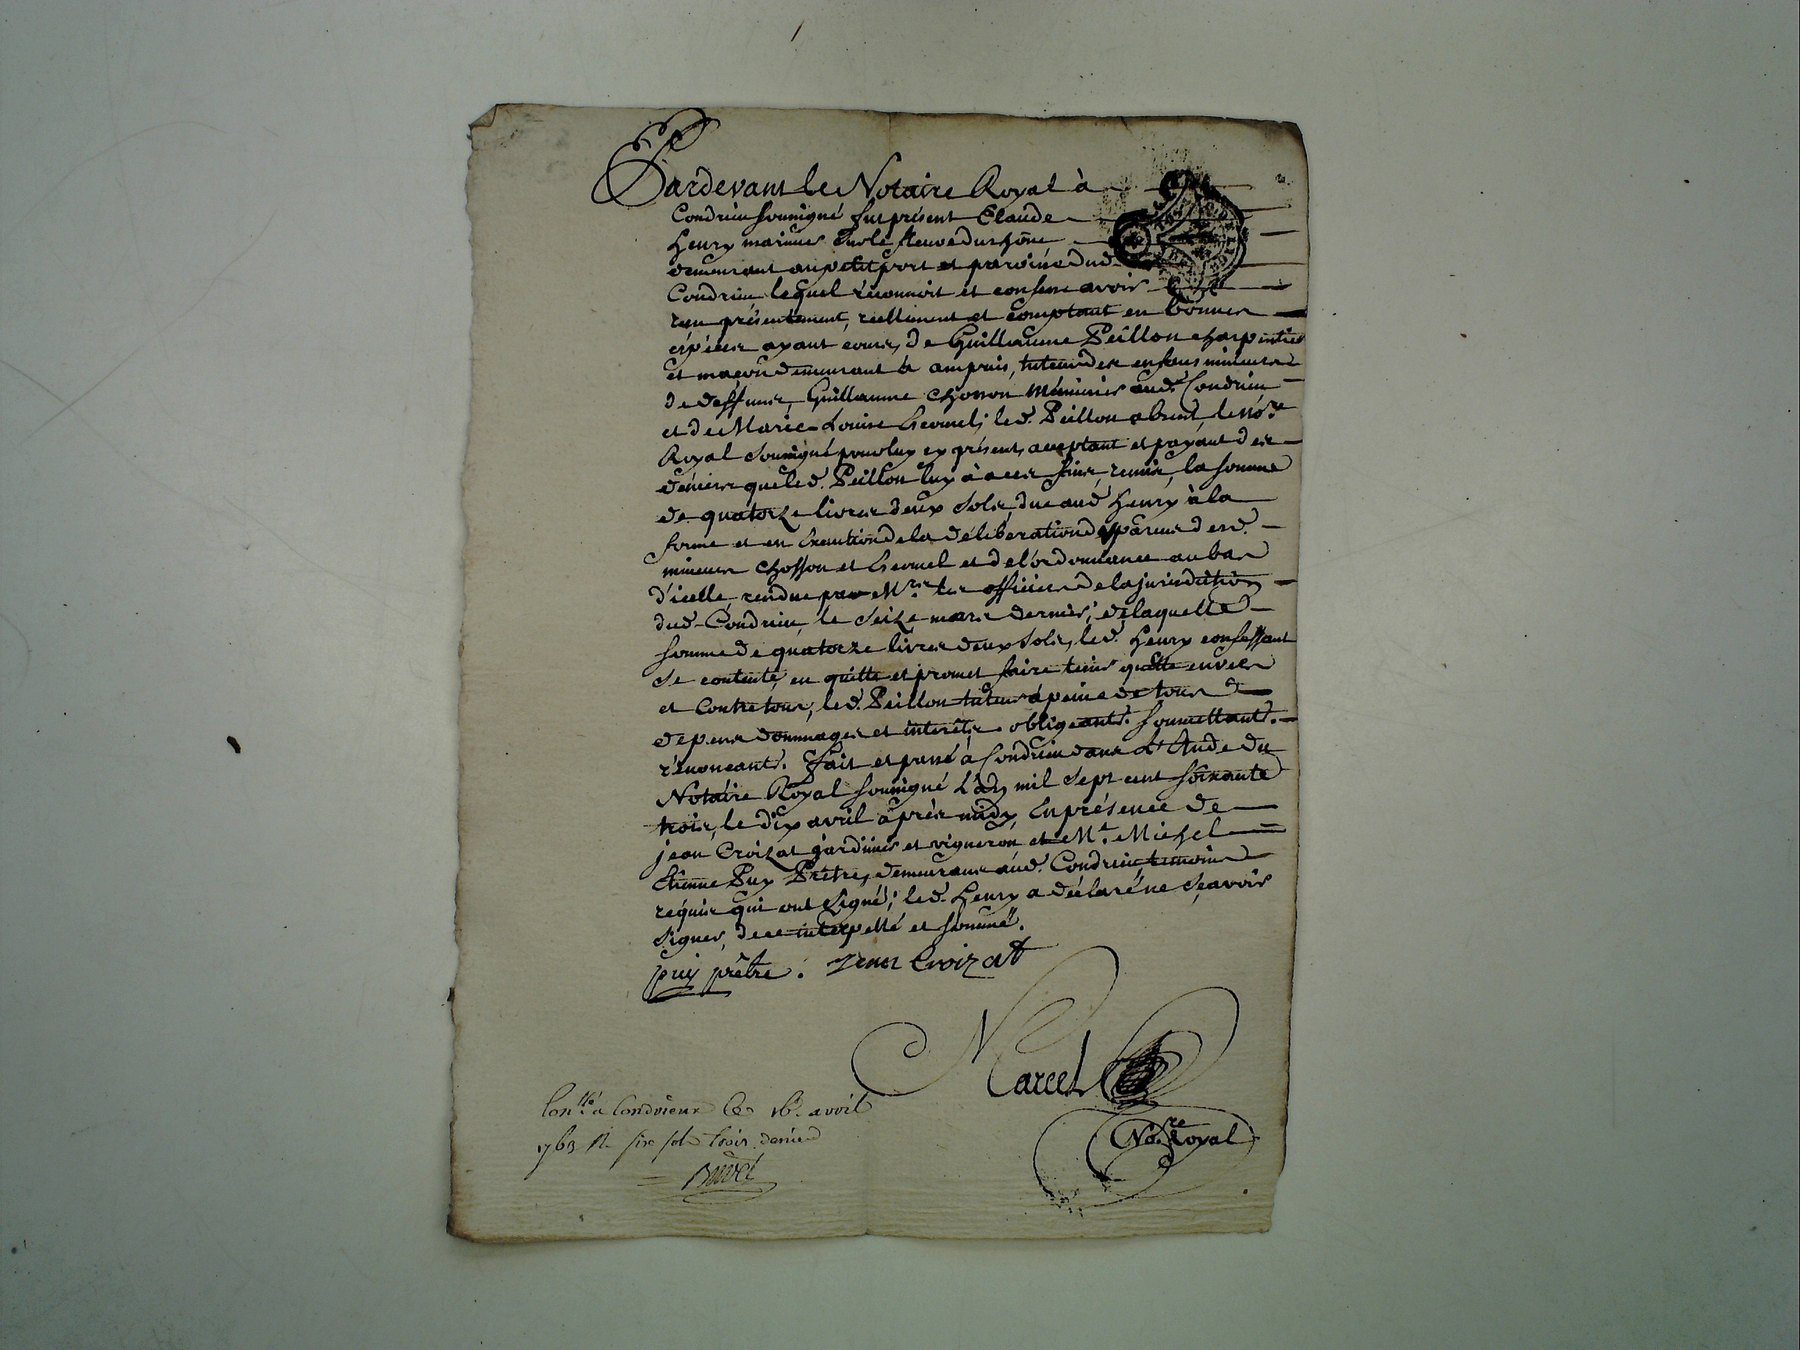 Pardevant le Notaire Royal à
Condrieu soussigné fut présent Claude
Henry marinier sur le fleuve du rhône
demeurant au petit port et paroisse dud.
Condrieu lequel reconnoit et confesse avoir
reçu présentement, réellement et comptant en bonnes
espéces ayant cours, de Guillaume Peillon charpentier
et maçon demeurant à ampuis, tuteur des enfans mineurs
de deffunts Guillaume Chosson Menuisier aud. Condrieu
et de Marie Louise ; led. Peillon absent, le No.re
Royal soussigné pour luy présent, acceptant et payant des
deniers que led. Peillon luy à à ces fins remis, la somme
de quatorze livres deux sols, due aud. Henry à la
forme et en Execution de la déliberation des parens desd.
mineurs Chosson et et de l'ordonnance au bas
d'icelle, rendue par M.rs les officiers de la jurisdiction
dud. Condrieu, le seize mars dernier; de laquelle
somme de quatorze livres deux sols, led. Henry confessant
se contente, en quitte et promet faire tenir quitte envers
et contre tous, led. Peillon tuteur à peine de tous
depens dommages et interêts. obligeants. soumettants.
rénonceants. fait et passé à Condrieu dans l'Etude du
Notaire Royal soussigné L'an mil sept cent soixante
trois, le dix avril après midy, En présence de
jean Croizat jardinier et vigneron et M.e Michel
Etienne Puy Prêtre, demeurans aud. Condrieu, temoins
requis qui ont signé; led. Henry a déclaré ne sçavoir
signer, de ce interpellé et sommé.
puy prêtre. Jean Croizat
Marcel
No.re Royal
Con.llé a Condrieux le 16. avril
1763 R. six sols trois deniers